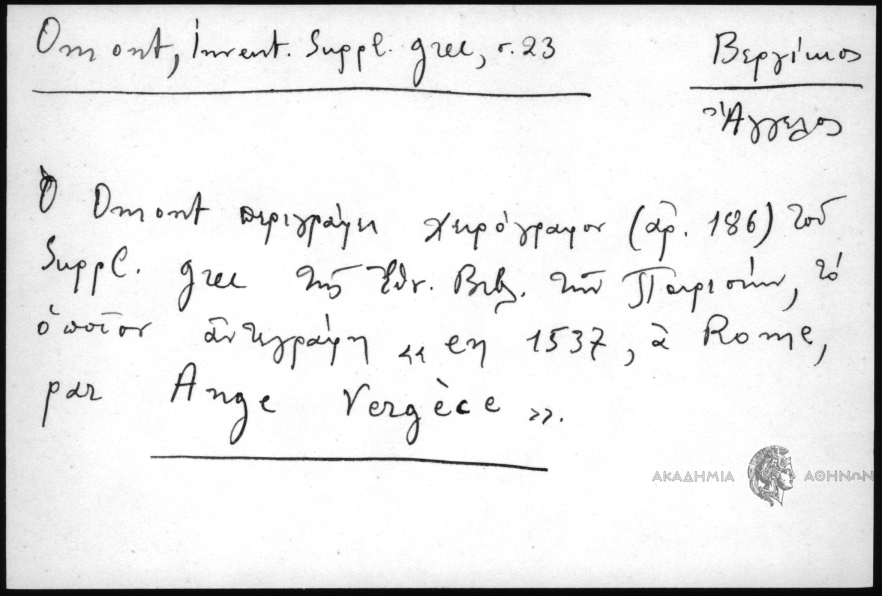 Omont, Invent. Suppl. grec, σ. 23
Βεργίκιος
Ἄγγελος
Ὁ Omont περιγράφει χειρόγραφον (ἀρ. 186) τοῦ
Suppl. grec τῆς Ἐθν. Βιβλ. τῶν Παρισίων, τὸ
ὁποῖον ἀντεγράφη «en 1537, à Rome,
par Ange Vergèce».
ΑΚΑΔΗΜΙΑ ΑΘΗΝΩΝ